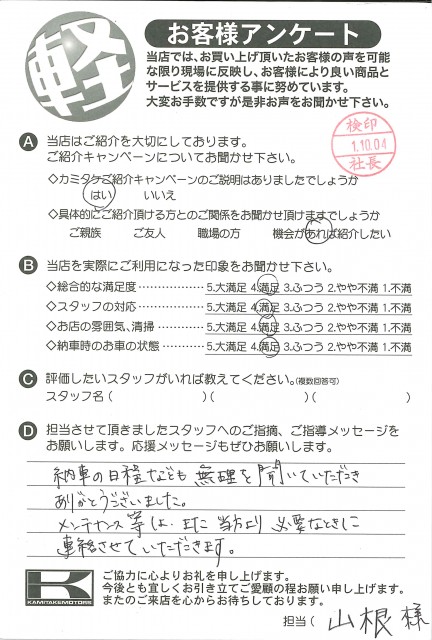 軽
お客様アンケート
当店では、お買い上げ頂いたお客様の声を可能
な限り現場に反映し、お客様により良い商品と
サービスを提供する事に努めています。
大変お手数ですが是非お声をお聞かせ下さい。
検印
1.10.04
社長
A 当店はご紹介を大切にしております。
ご紹介キャンペーンについてお聞かせ下さい。
◇カミタケご紹介キャンペーンのご説明はありましたでしょうか
はい いいえ
◇具体的にご紹介頂ける方とのご関係をお聞かせ頂けますでしょうか
ご親族 ご友人 職場の方 機会があれば紹介したい
B 当店を実際にご利用になった印象をお聞かせ下さい。
◇総合的な満足度 5.大満足 4.満足 3.ふつう 2.やや不満 1.不満
◇スタッフの対応 5.大満足 4.満足 3.ふつう 2.やや不満 1.不満
◇お店の雰囲気、清掃 5.大満足 4.満足 3.ふつう 2.やや不満 1.不満
◇納車時のお車の状態 5.大満足 4.満足 3.ふつう 2.やや不満 1.不満
C 評価したいスタッフがいれば教えてください。(複数回答可)
スタッフ名 ( )( )( )
D 担当させて頂きましたスタッフへのご指摘、ご指導メッセージを
お願いします。応援メッセージもぜひお願いします。
納車の日程なども無理を聞いていただき
ありがとうございました。
メンテナンス等は、また当方より必要なときに
連絡させていただきます。
KAMITAKEMOTORS
ご協力に心よりお礼を申し上げます。
今後とも宜しくお引き立てご愛顧の程お願い申し上げます。
またのご来店を心からお待ちしております。
担当( 山根様